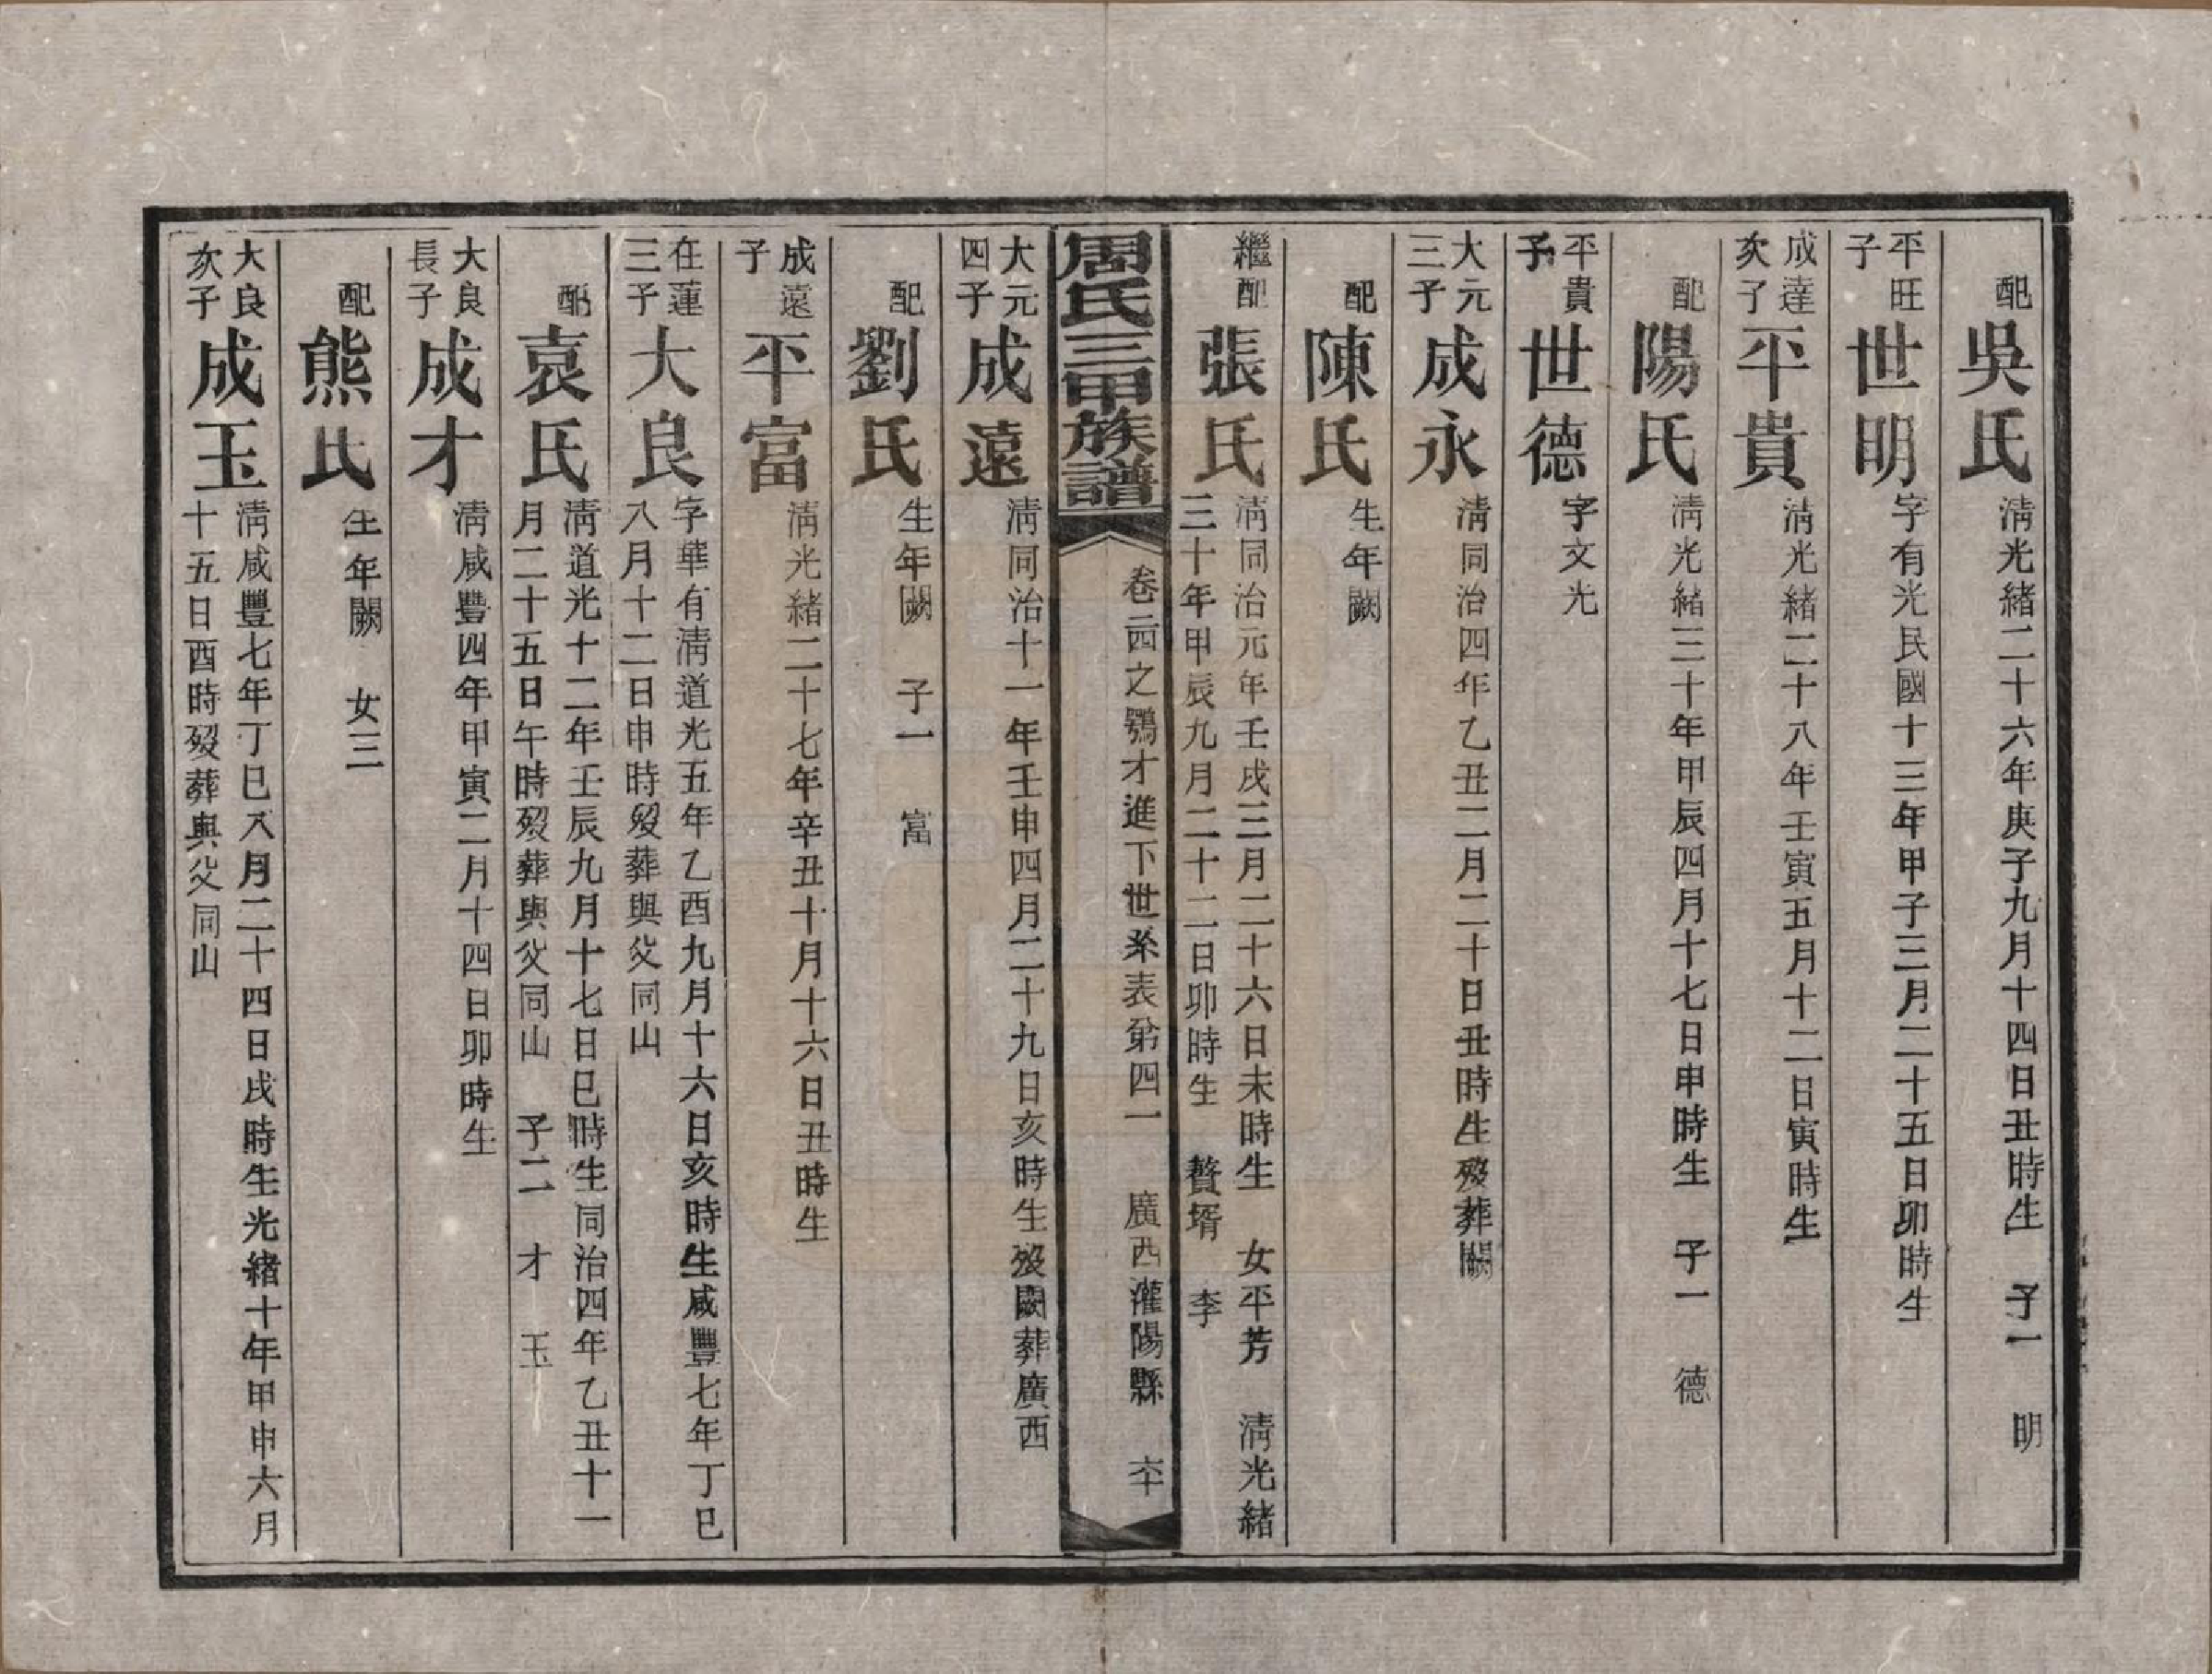 配吳氏 清光緒二十六年庚子九月十四日丑時生 子一 明
平旺子 世明 字有光民國十三年甲子三月二十五日卯時生
成達次子 平貴 清光緒二十八年壬寅五月十二日寅時生
配陽氏 清光緒三十年甲辰四月十七日申時生 子一 德
平貴子 世德 字文光
大元三子 成永 清同治四年乙丑二月二十日丑時生歿葬闕
配陳氏 生年闕
繼配張氏 清同治元年壬戌三月二十六日未時生 女平芳 清光緒
三十年甲辰九月二十二日卯時生 贅壻 李
周氏三甲族譜
卷二四之鶚才進下世系表第四一 廣西灌陽縣
大元四子 成遠 清同治十一年壬申四月二十九日亥時生歿闕葬廣西
配劉氏 生年闕 子一 富
成遠子 平富 清光緒二十七年辛丑十月十六日丑時生
在蓮三子 大良 字華有清道光五年乙酉九月十六日亥時生咸豐七年丁巳
八月十二日申時歿葬與父同山
配袁氏 清道光十二年壬辰九月十七日巳時生同治四年乙丑十一
月二十五日午時歿葬與父同山 子二 才 玉
大良長子 成才 清咸豐四年甲寅二月十四日卯時生
配熊氏 生年闕 女三
大良次子 成玉 清咸豐七年丁巳八月二十四日戌時生光緒十年甲申六月
十五日酉時歿葬與父同山